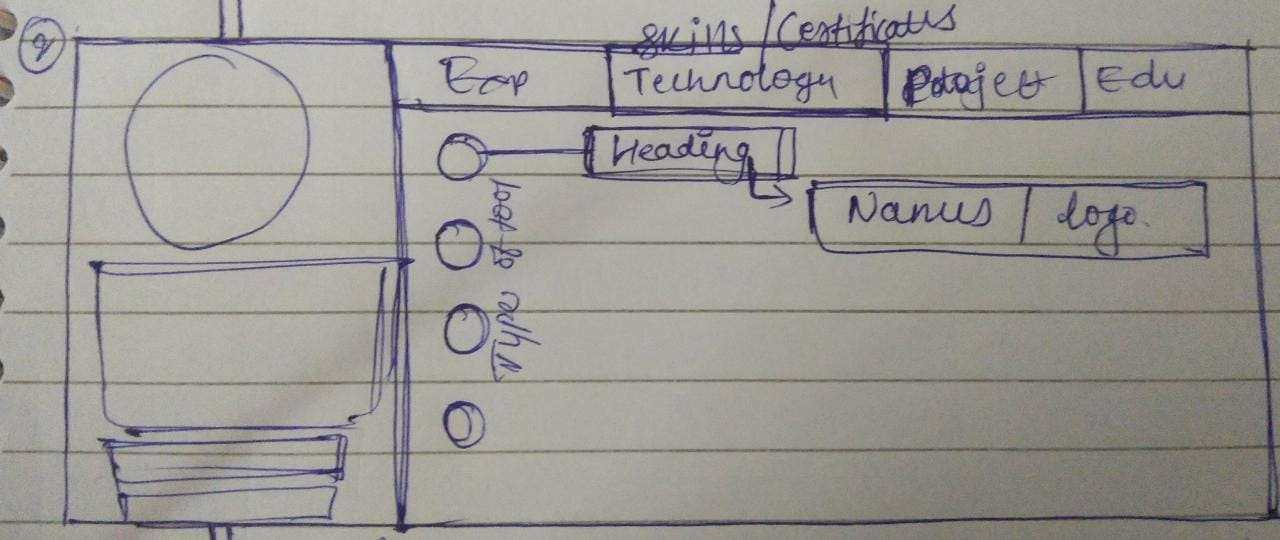 2
Skills/Certificates
Exp Technology Project Edu
Heading
Names logo.
loop of